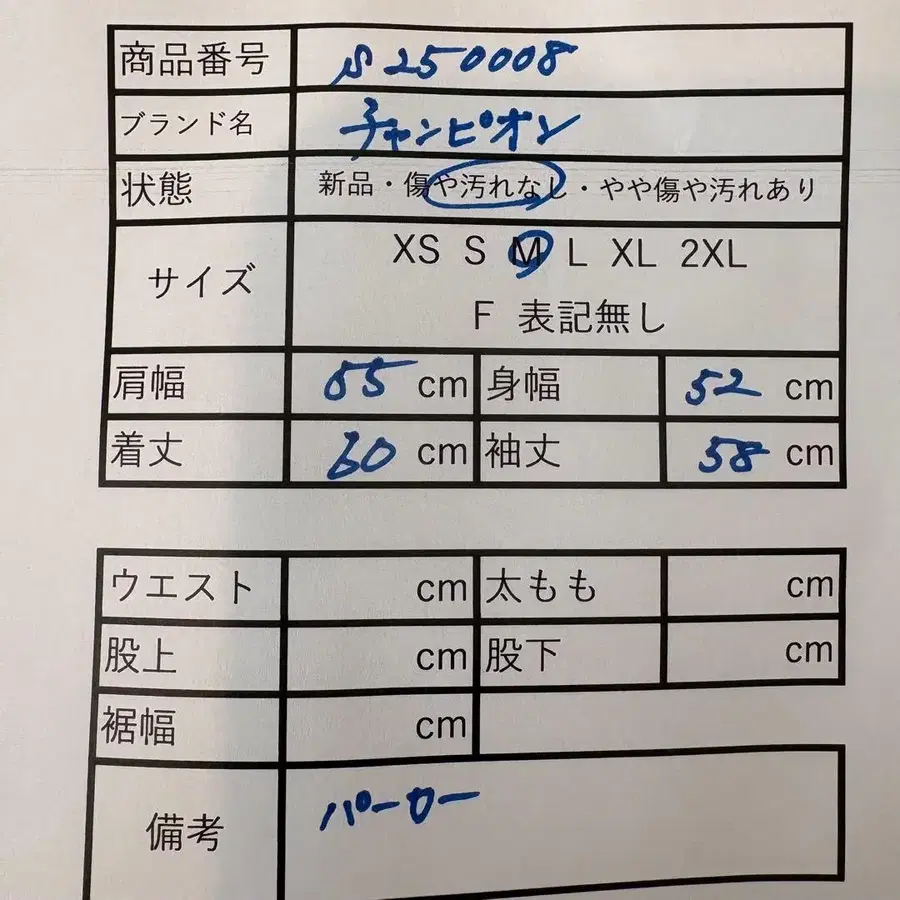 商品番号 S250008
ブランド名 チャンピオン
状態 新品・傷や汚れなし・やや傷や汚れあり
サイズ XS S M L XL 2XL
F 表記無し
肩幅 55 cm 身幅 52 cm
着丈 60 cm 袖丈 58 cm
ウエスト cm 太もも cm
股上 cm 股下 cm
裾幅 cm
備考 パーカー